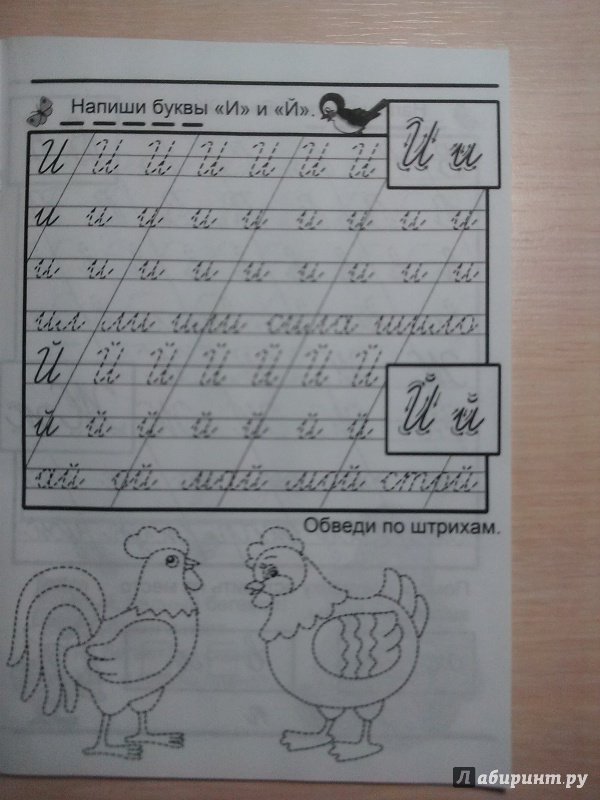 Напиши буквы «И» и «Й».
И И И И И И И
И и
и и и и и и и и и
и и и и и и и и и
ил ли или сила шило
Й Й Й Й Й Й Й
Й й
й й й й й й й
ай ой май мой строй
Обведи по штрихам.
Лабиринт.ру